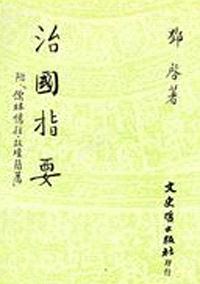 鄧啓著
治國指要
附「儒林憶往・政壇
文史哲出版社印行